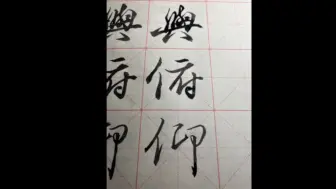 與 與
俯 俯
仰 仰